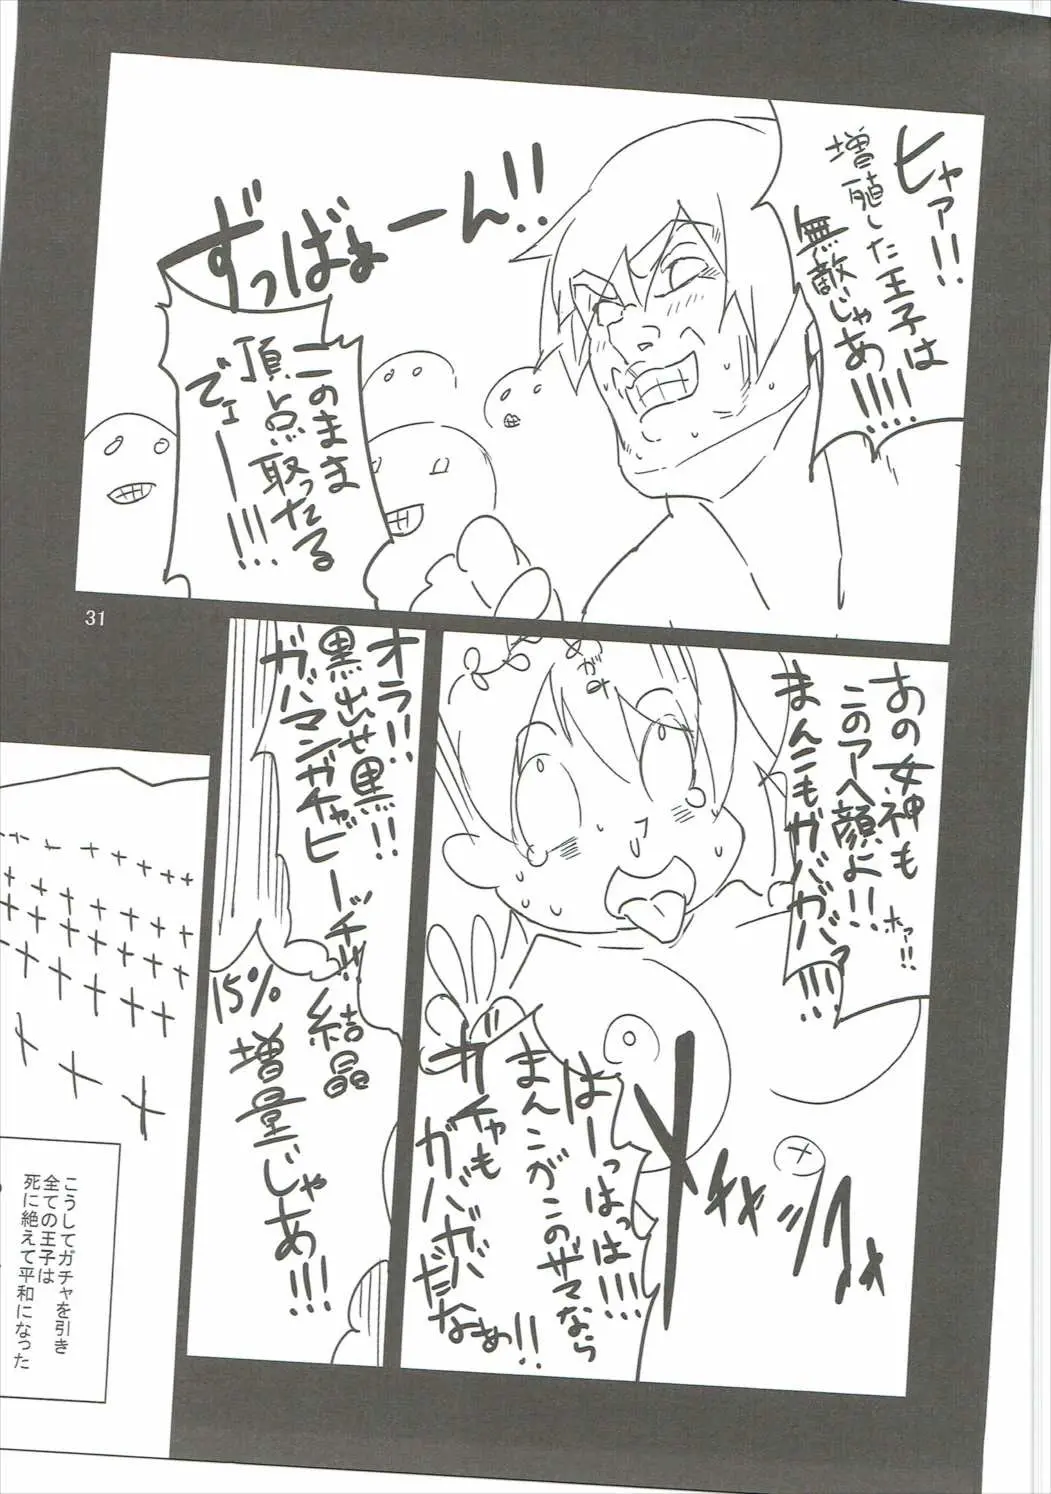 ヒャァ!!
増殖した王子は
無敵じゃあ!!!!
ずっばぁーん!!
このまま
頂点取ったる
でェー!!!
31
あの女神も
このアヘ顔よ!!
まんこもガバガバァ!!!!
はーっはっは!!!
まんこがこのザマなら
ガチャも
ガバガバ
だなぁ!!
オラ!!
黒出せ黒!!
ガバマンガチャビーッチ!!
結晶
15%
増量じゃあ!!!
こうしてガチャを引き
全ての王子は
死に絶えて平和になった